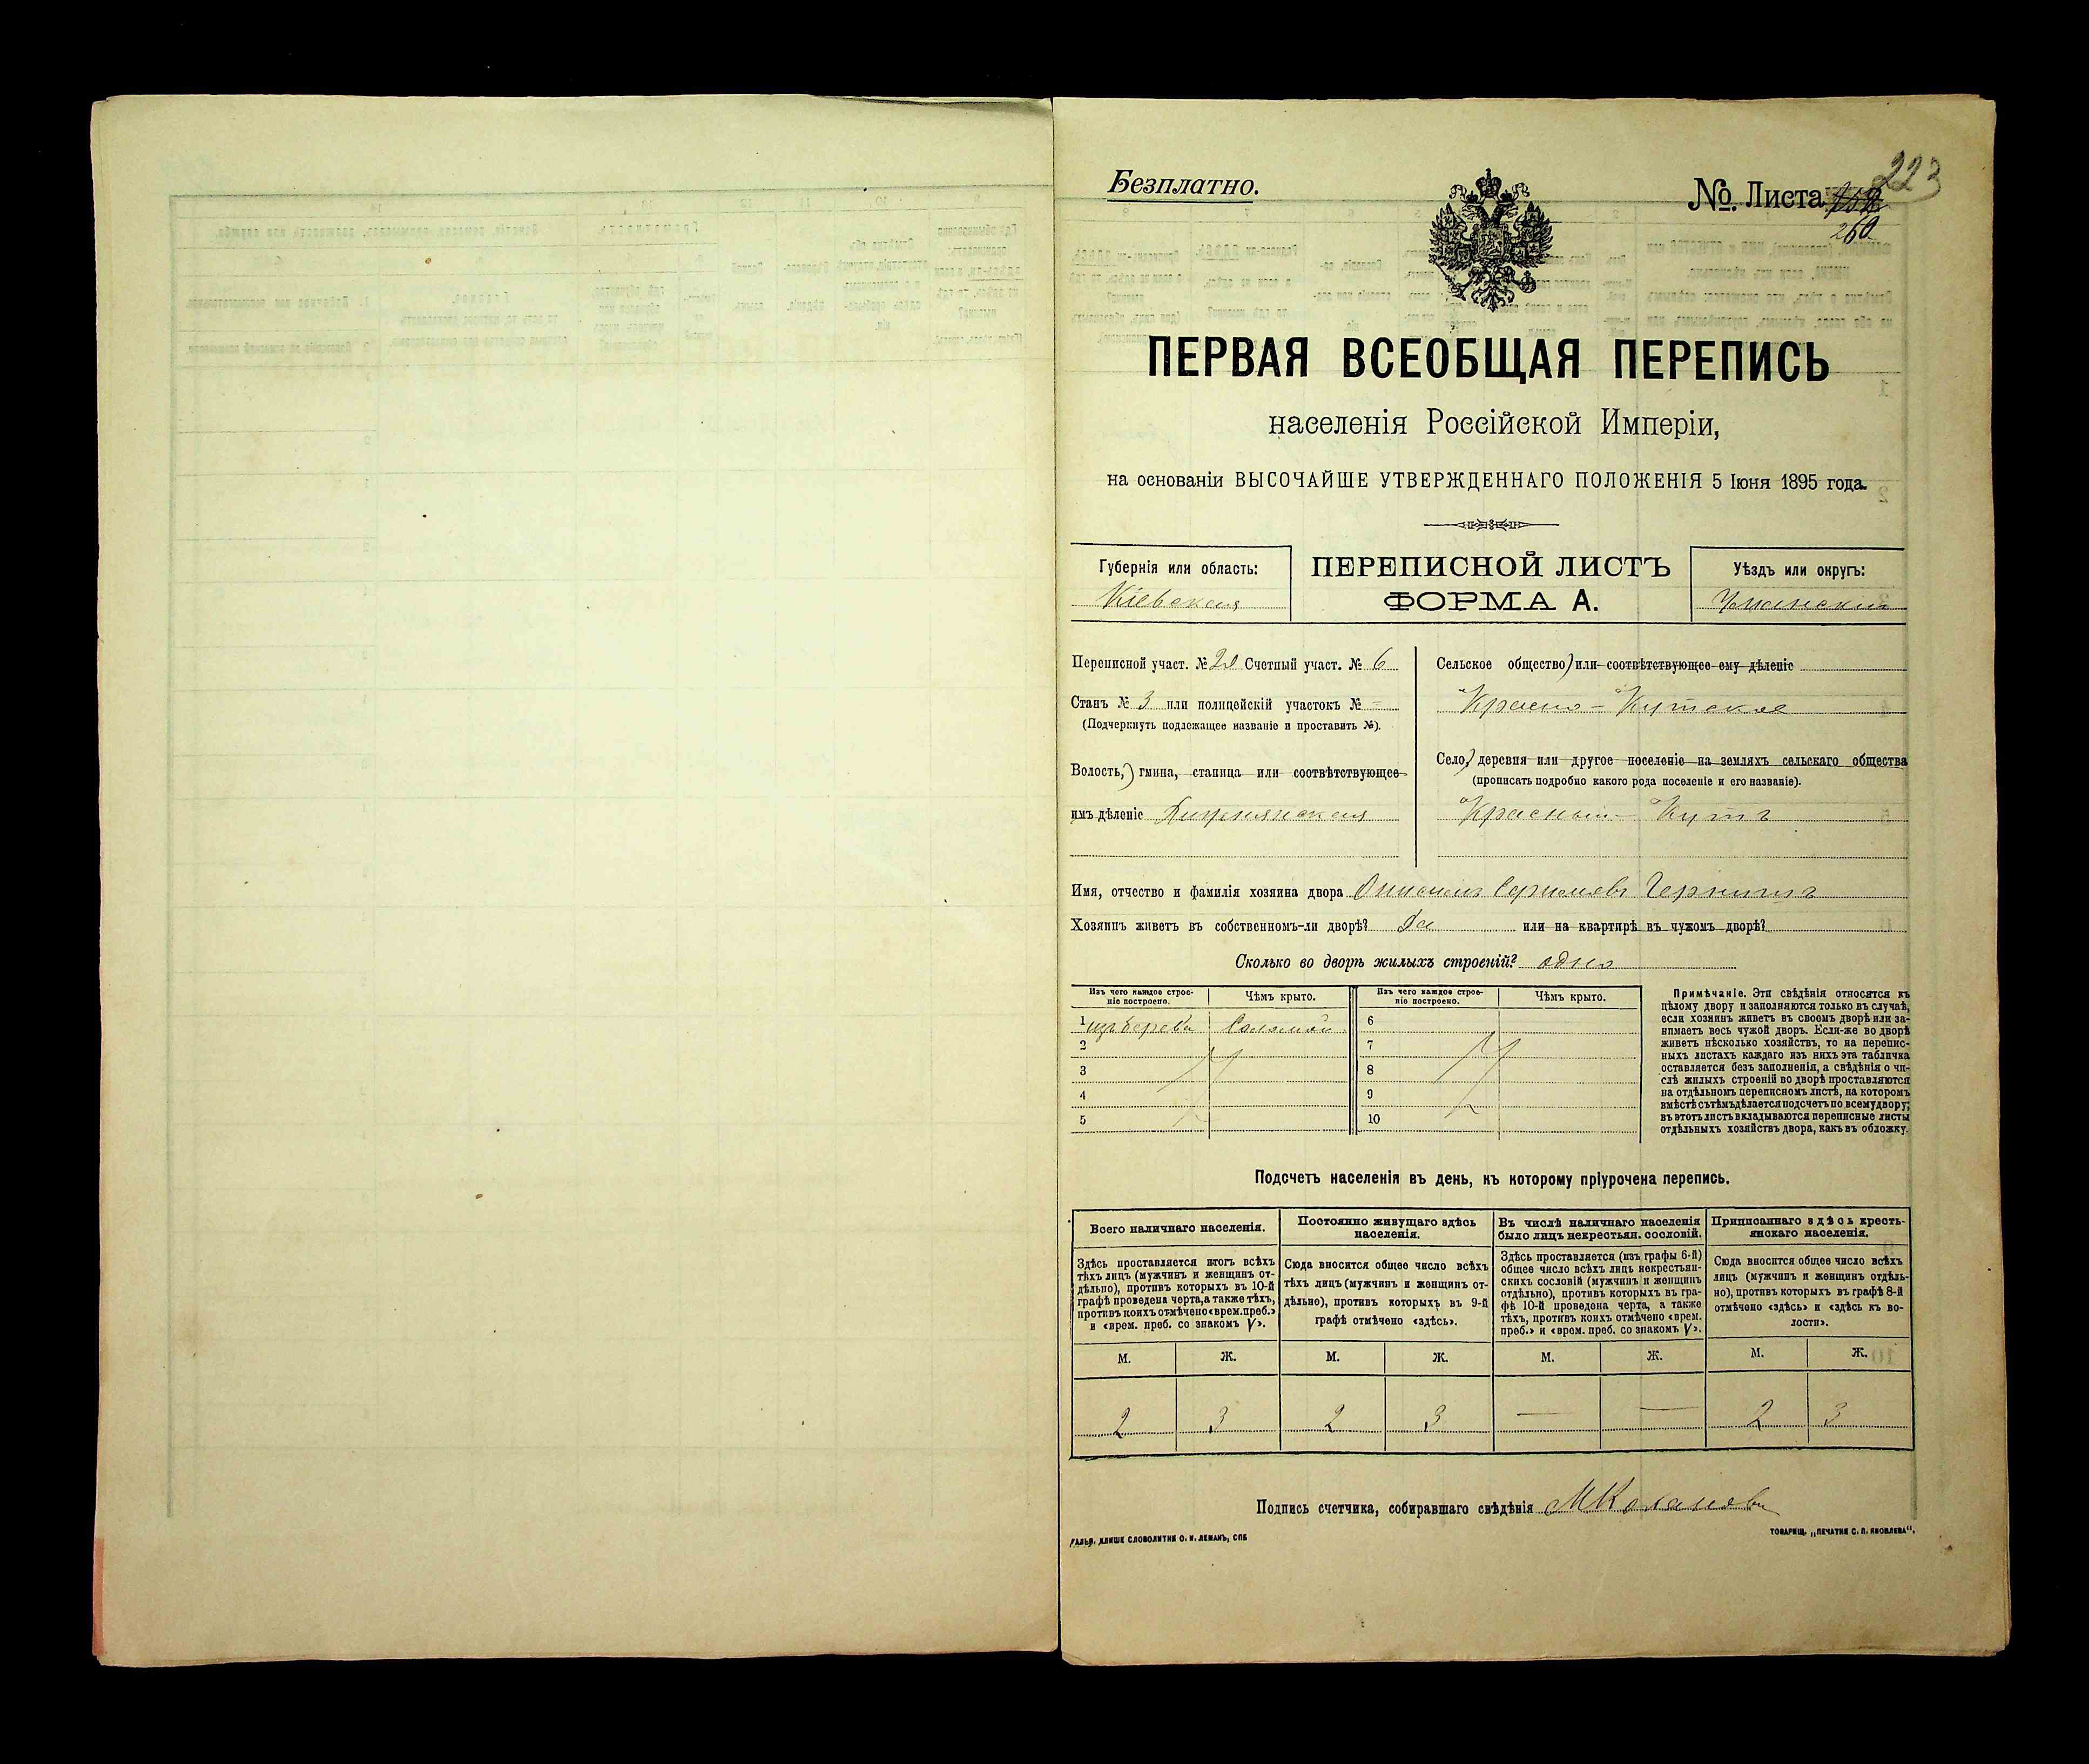 223
Безплатно.
№. Листа
260
ПЕРВАЯ ВСЕОБЩАЯ ПЕРЕПИСЬ
населенія Россійской Имперіи,
на основаніи ВЫСОЧАЙШЕ УТВЕРЖДЕННАГО ПОЛОЖЕНІЯ 5 Іюня 1895 года.
Губернія или область:
Кіевская
ПЕРЕПИСНОЙ ЛИСТЪ
ФОРМА А.
Уѣздъ или округъ:
Уманскій
Переписной участ. № Счетный участ. № 6
Станъ № 3 или полицейскій участокъ № -
(Подчеркнуть подлежащее названіе и проставить №).
Волость,) гмина, станица или соотвѣтствующее
имъ дѣленіе
Сельское общество) или соотвѣтствующее ему дѣленіе
Красно-Кутское
Село,) деревня или другое поселеніе на земляхъ сельскаго общества
(прописать подробно какого рода поселеніе и его названіе).
Красный-Кутъ
Имя, отчество и фамилія хозяина двора
Хозяинъ живетъ въ собственномъ-ли дворѣ? Да или на квартирѣ въ чужомъ дворѣ?
Сколько во дворѣ жилыхъ строеній? одно
Изъ чего каждое строе-
ніе построено.
Чѣмъ крыто.
Изъ чего каждое строе-
ніе построено.
Чѣмъ крыто.
1 изъ дерева Соломой 6
2 7
3 8
4 9
5 10
Примѣчаніе. Эти свѣдѣнія относятся къ
цѣлому двору и заполняются только въ случаѣ,
если хозяинъ живетъ въ своемъ дворѣ или за-
нимаетъ весь чужой дворъ. Если-же во дворѣ
живетъ нѣсколько хозяйствъ, то на перепис-
ныхъ листахъ каждаго изъ нихъ эта табличка
оставляется безъ заполненія, а свѣдѣнія о чи-
слѣ жилыхъ строеній во дворѣ проставляются
на отдѣльномъ переписномъ листѣ, на которомъ
вмѣстѣ съ тѣмъ дѣлается подсчетъ по всему двору;
въ этотъ листъ вкладываются переписные листы
отдѣльныхъ хозяйствъ двора, какъ въ обложку.
Подсчетъ населенія въ день, къ которому пріурочена перепись.
Всего наличнаго населенія.
Постоянно живущаго здѣсь
населенія.
Въ числѣ наличнаго населенія
было лицъ некрестьян. сословій.
Приписаннаго здѣсь кресть-
янскаго населенія.
Здѣсь проставляется итогъ всѣхъ
тѣхъ лицъ (мужчинъ и женщинъ от-
дѣльно), противъ которыхъ въ 10-й
графѣ проведена черта, а также тѣхъ,
противъ коихъ отмѣчено «врем. преб.»
и «врем. преб. со знакомъ V».
Сюда вносится общее число всѣхъ
тѣхъ лицъ (мужчинъ и женщинъ от-
дѣльно), противъ которыхъ въ 9-й
графѣ отмѣчено «здѣсь».
Здѣсь проставляется (изъ графы 6-й)
общее число всѣхъ лицъ некрестьян-
скихъ сословій (мужчинъ и женщинъ
отдѣльно), противъ которыхъ въ гра-
фѣ 10-й проведена черта, а также
тѣхъ, противъ коихъ отмѣчено «врем.
преб.» и «врем. преб. со знакомъ V».
Сюда вносится общее число всѣхъ
лицъ (мужчинъ и женщинъ отдѣль-
но), противъ которыхъ въ графѣ 8-й
отмѣчено «здѣсь» и «здѣсь къ во-
лости».
М. Ж. М. Ж. М. Ж. М. Ж.
2 3 2 3 — — 2 3
Подпись счетчика, собиравшаго свѣдѣнія
ГАЛЬВ. КЛИШЕ СЛОВОЛИТНИ О. И. ЛЕМАНЪ, СПБ
ТОВАРИЩ. „ПЕЧАТНЯ С. П. ЯКОВЛЕВА".